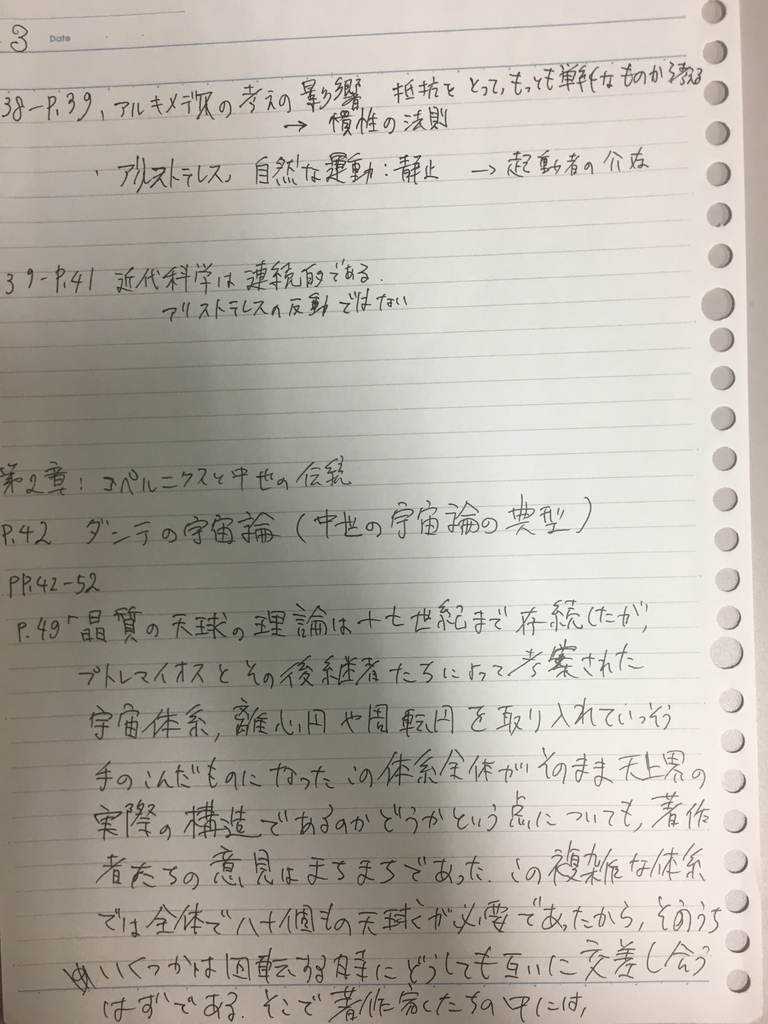 3 Date
38-P.39, アルキメデスの考えの影響 抵抗をとって、もっとも単純なものから考える
→ 慣性の法則
・アリストテレス, 自然な運動:静止 → 起動者の介在
39-P.41 近代科学は連続的である.
アリストテレスの反動ではない
第2章: コペルニクスと中世の伝統
P.42 ダンテの宇宙論 (中世の宇宙論の典型)
PP.42-52
P.49「晶質の天球の理論は十七世紀まで存続したが,
プトレマイオスとその後継者たちによって考案された
宇宙体系, 離心円や周転円を取り入れていっそう
手のこんだものになったこの体系全体がそのまま天上界の
実際の構造であるのかどうかという点についても, 著作
者たちの意見はまちまちであった. この複雑な体系
では全体で八十個もの天球が必要であったから, そのうち
いくつかは回転する時にどうしても互いに交差し合う
はずである. そこで著作家たちの中には,